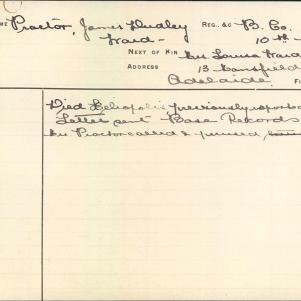 ME Proctor, James Dudley REG. &C B. Co.
Ward - 10th -
NEXT OF KIN Mrs Louisa Ward
ADDRESS 13 Mansfield
Adelaide F
Died Heliopolis previously reported
Letter sent Base Records
Mrs Proctor called &